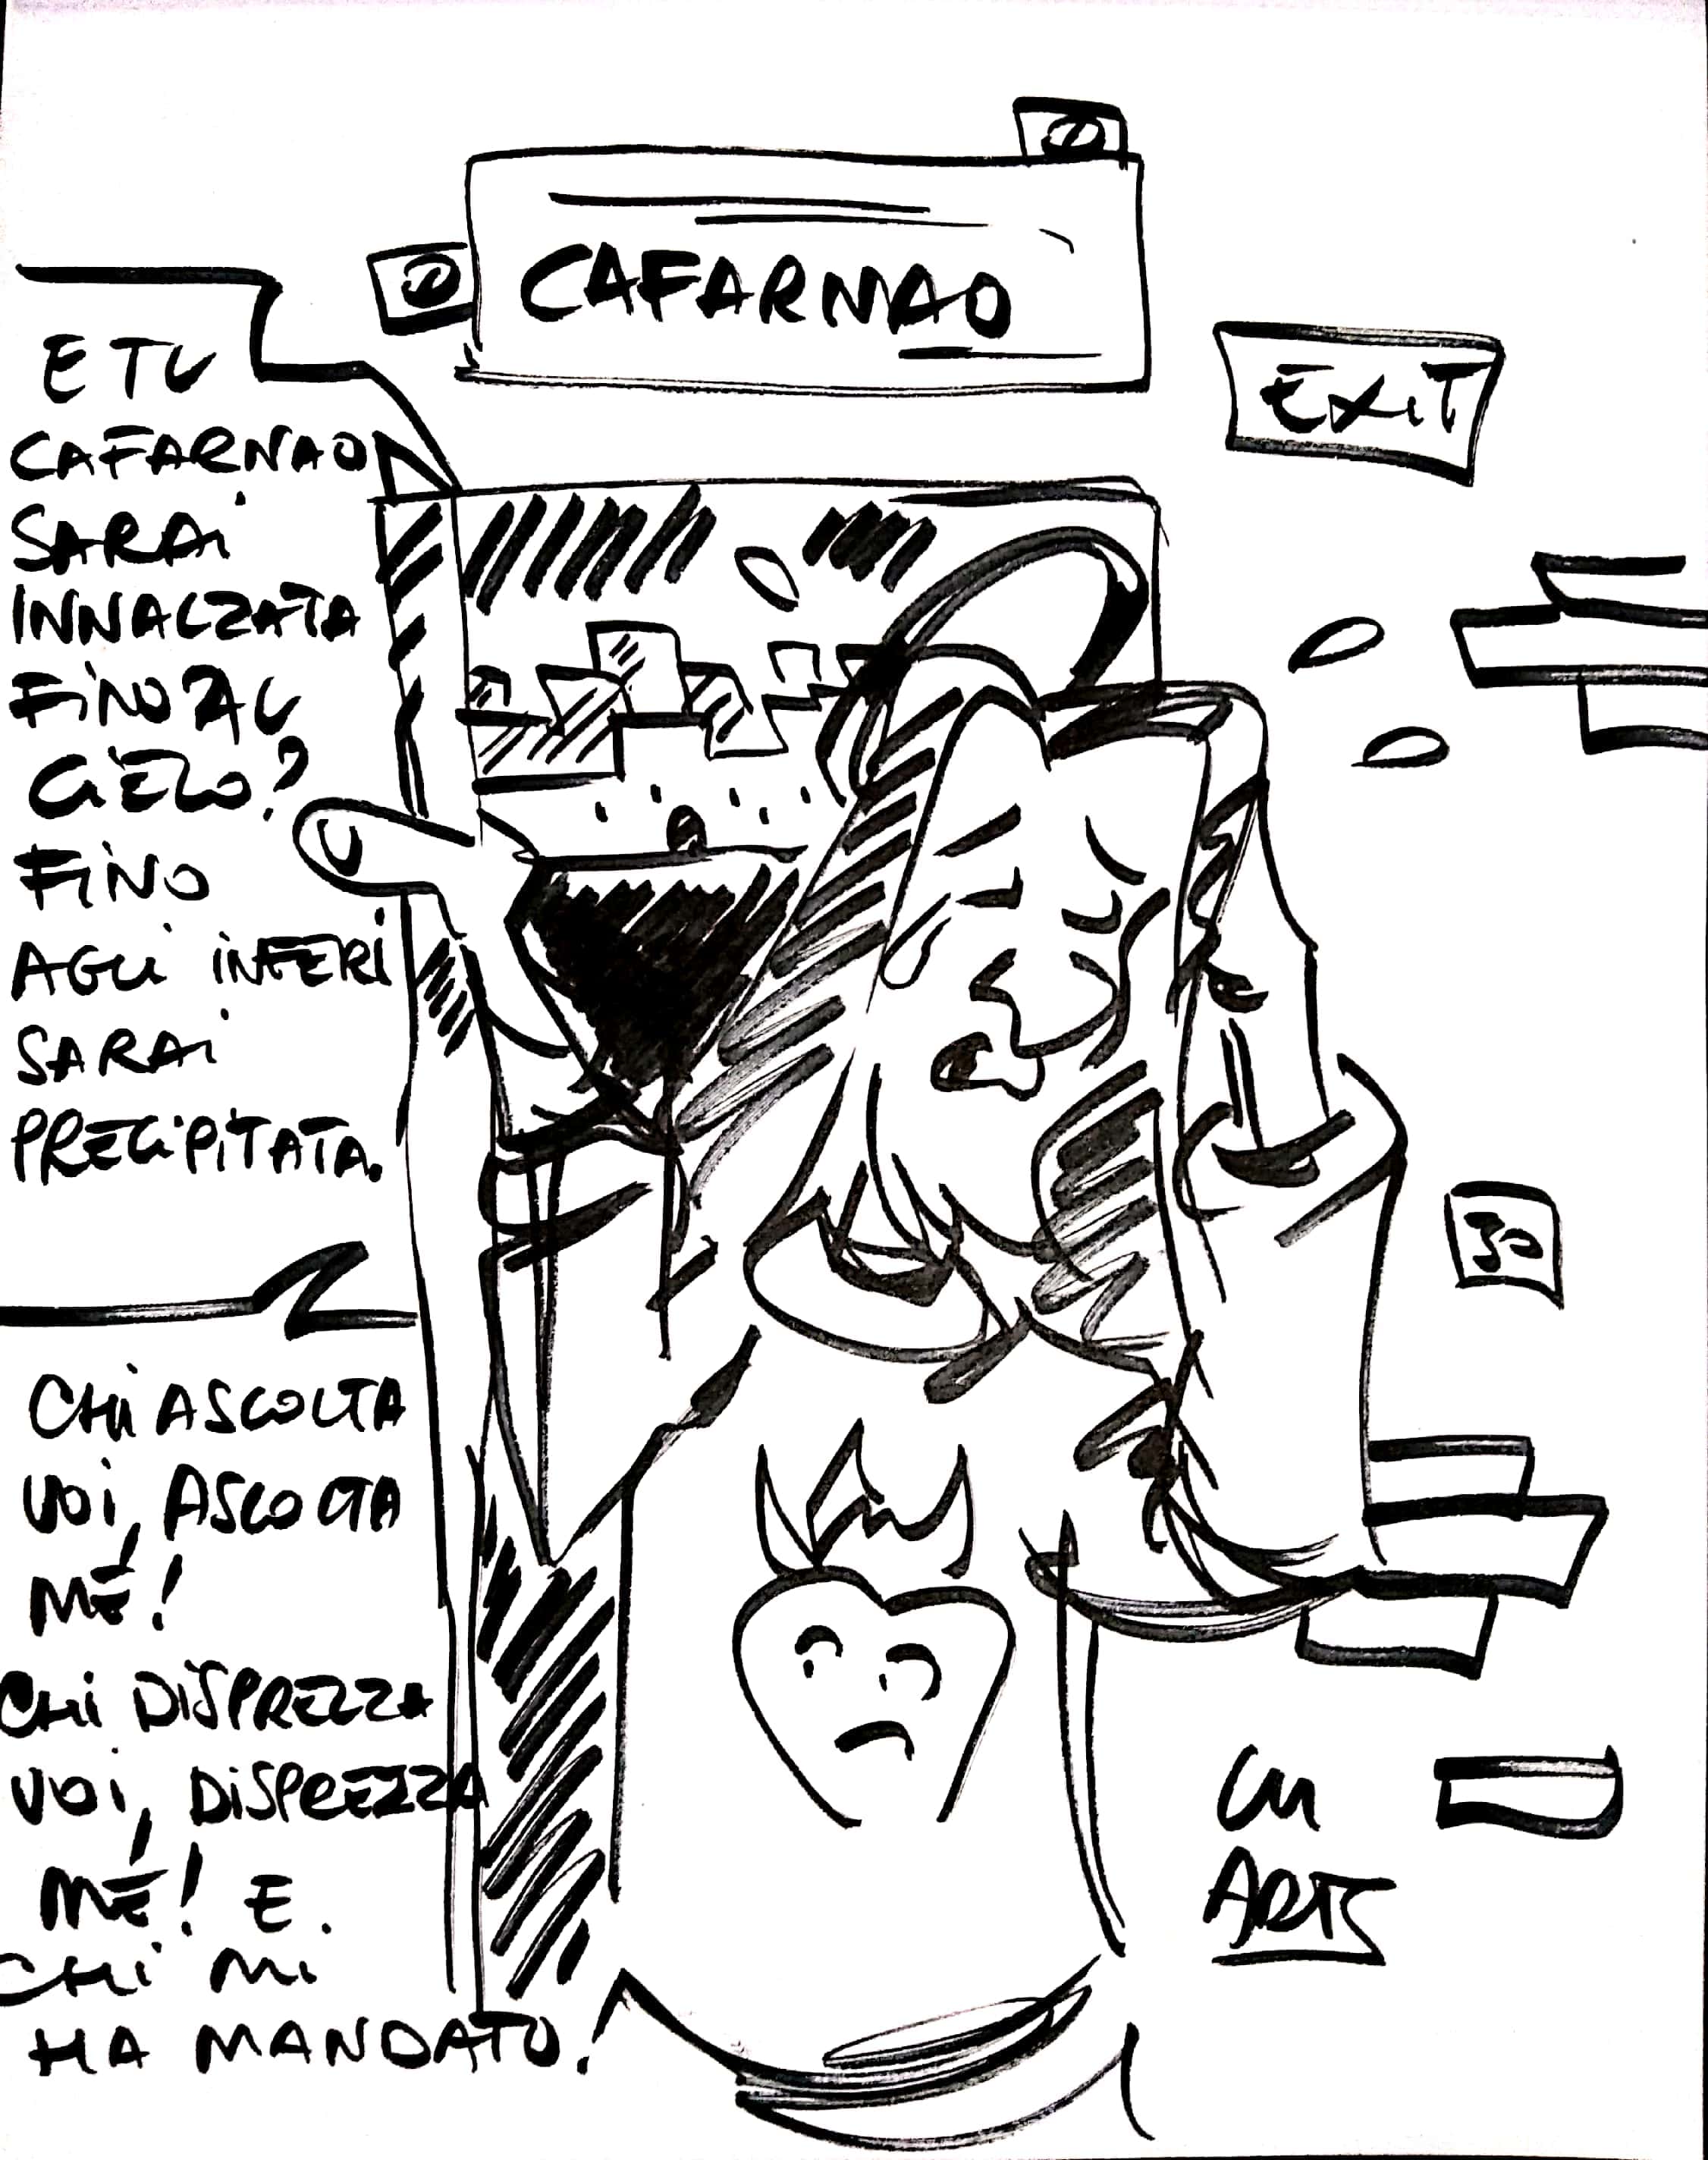 CAFARNAO
EXIT
E TU
CAFARNAO
SARAI
INNALZATA
FINO AL
CIELO?
FINO
AGLI INFERI
SARAI
PRECIPITATA.
CHI ASCOLTA
VOI, ASCOLTA
ME!
CHI DISPREZZA
VOI, DISPREZZA
ME! E.
CHI MI
HA MANDATO!
30
ARTS